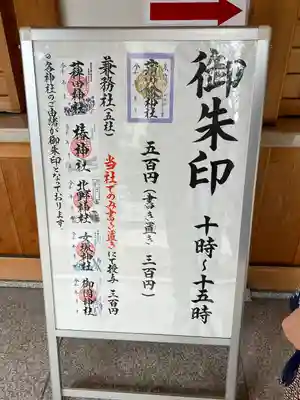 御朱印 十時～十五時
五百円(書き置き 三百円)
兼務社(五社)
当社でのみ書き置きにて授与 三百円
萩田神社
椿神社
北野神社
御園神社
◎各神社のご由緒が御朱印となっております。